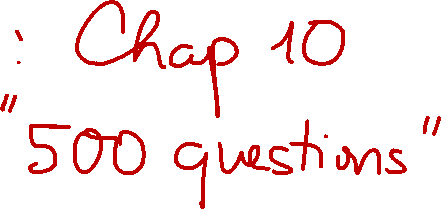 : Chap 10
"500 questions"